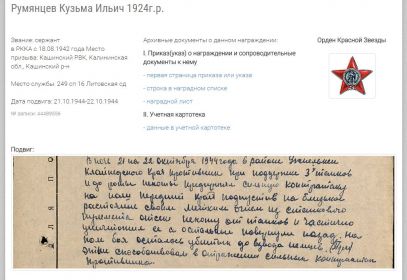 Румянцев Кузьма Ильич 1924г.р.
Звание: сержант
в РККА с 18.08.1942 года Место
призыва: Кашинский РВК, Калининская
обл., Кашинский р-н
Место службы: 249 сп 16 Литовская сд
Дата подвига: 21.10.1944-22.10.1944
№ записи:
Архивные документы о данном награждении:
I. Приказ(указ) о награждении и сопроводительные
документы к нему
- первая страница приказа или указа
- строка в наградном списке
- наградной лист
II. Учетная картотека
- данные в учетной картотеке
Орден Красной Звезды
Подвиг:
В ночь 21 на 22 октября 1944 года в районе
края противник при поддержке 3 танков
и до роты пехоты предпринял сильную контратаку
на наш передний край подпустив на близкое
растояние своим метким огнем из станкового
пулемета отсек пехоту от танков и частично
уничтожил её а остальных повернул назад, на
поле боя осталось убитых до взвода немцев
способствовал в отражении сильных контратак
противника.